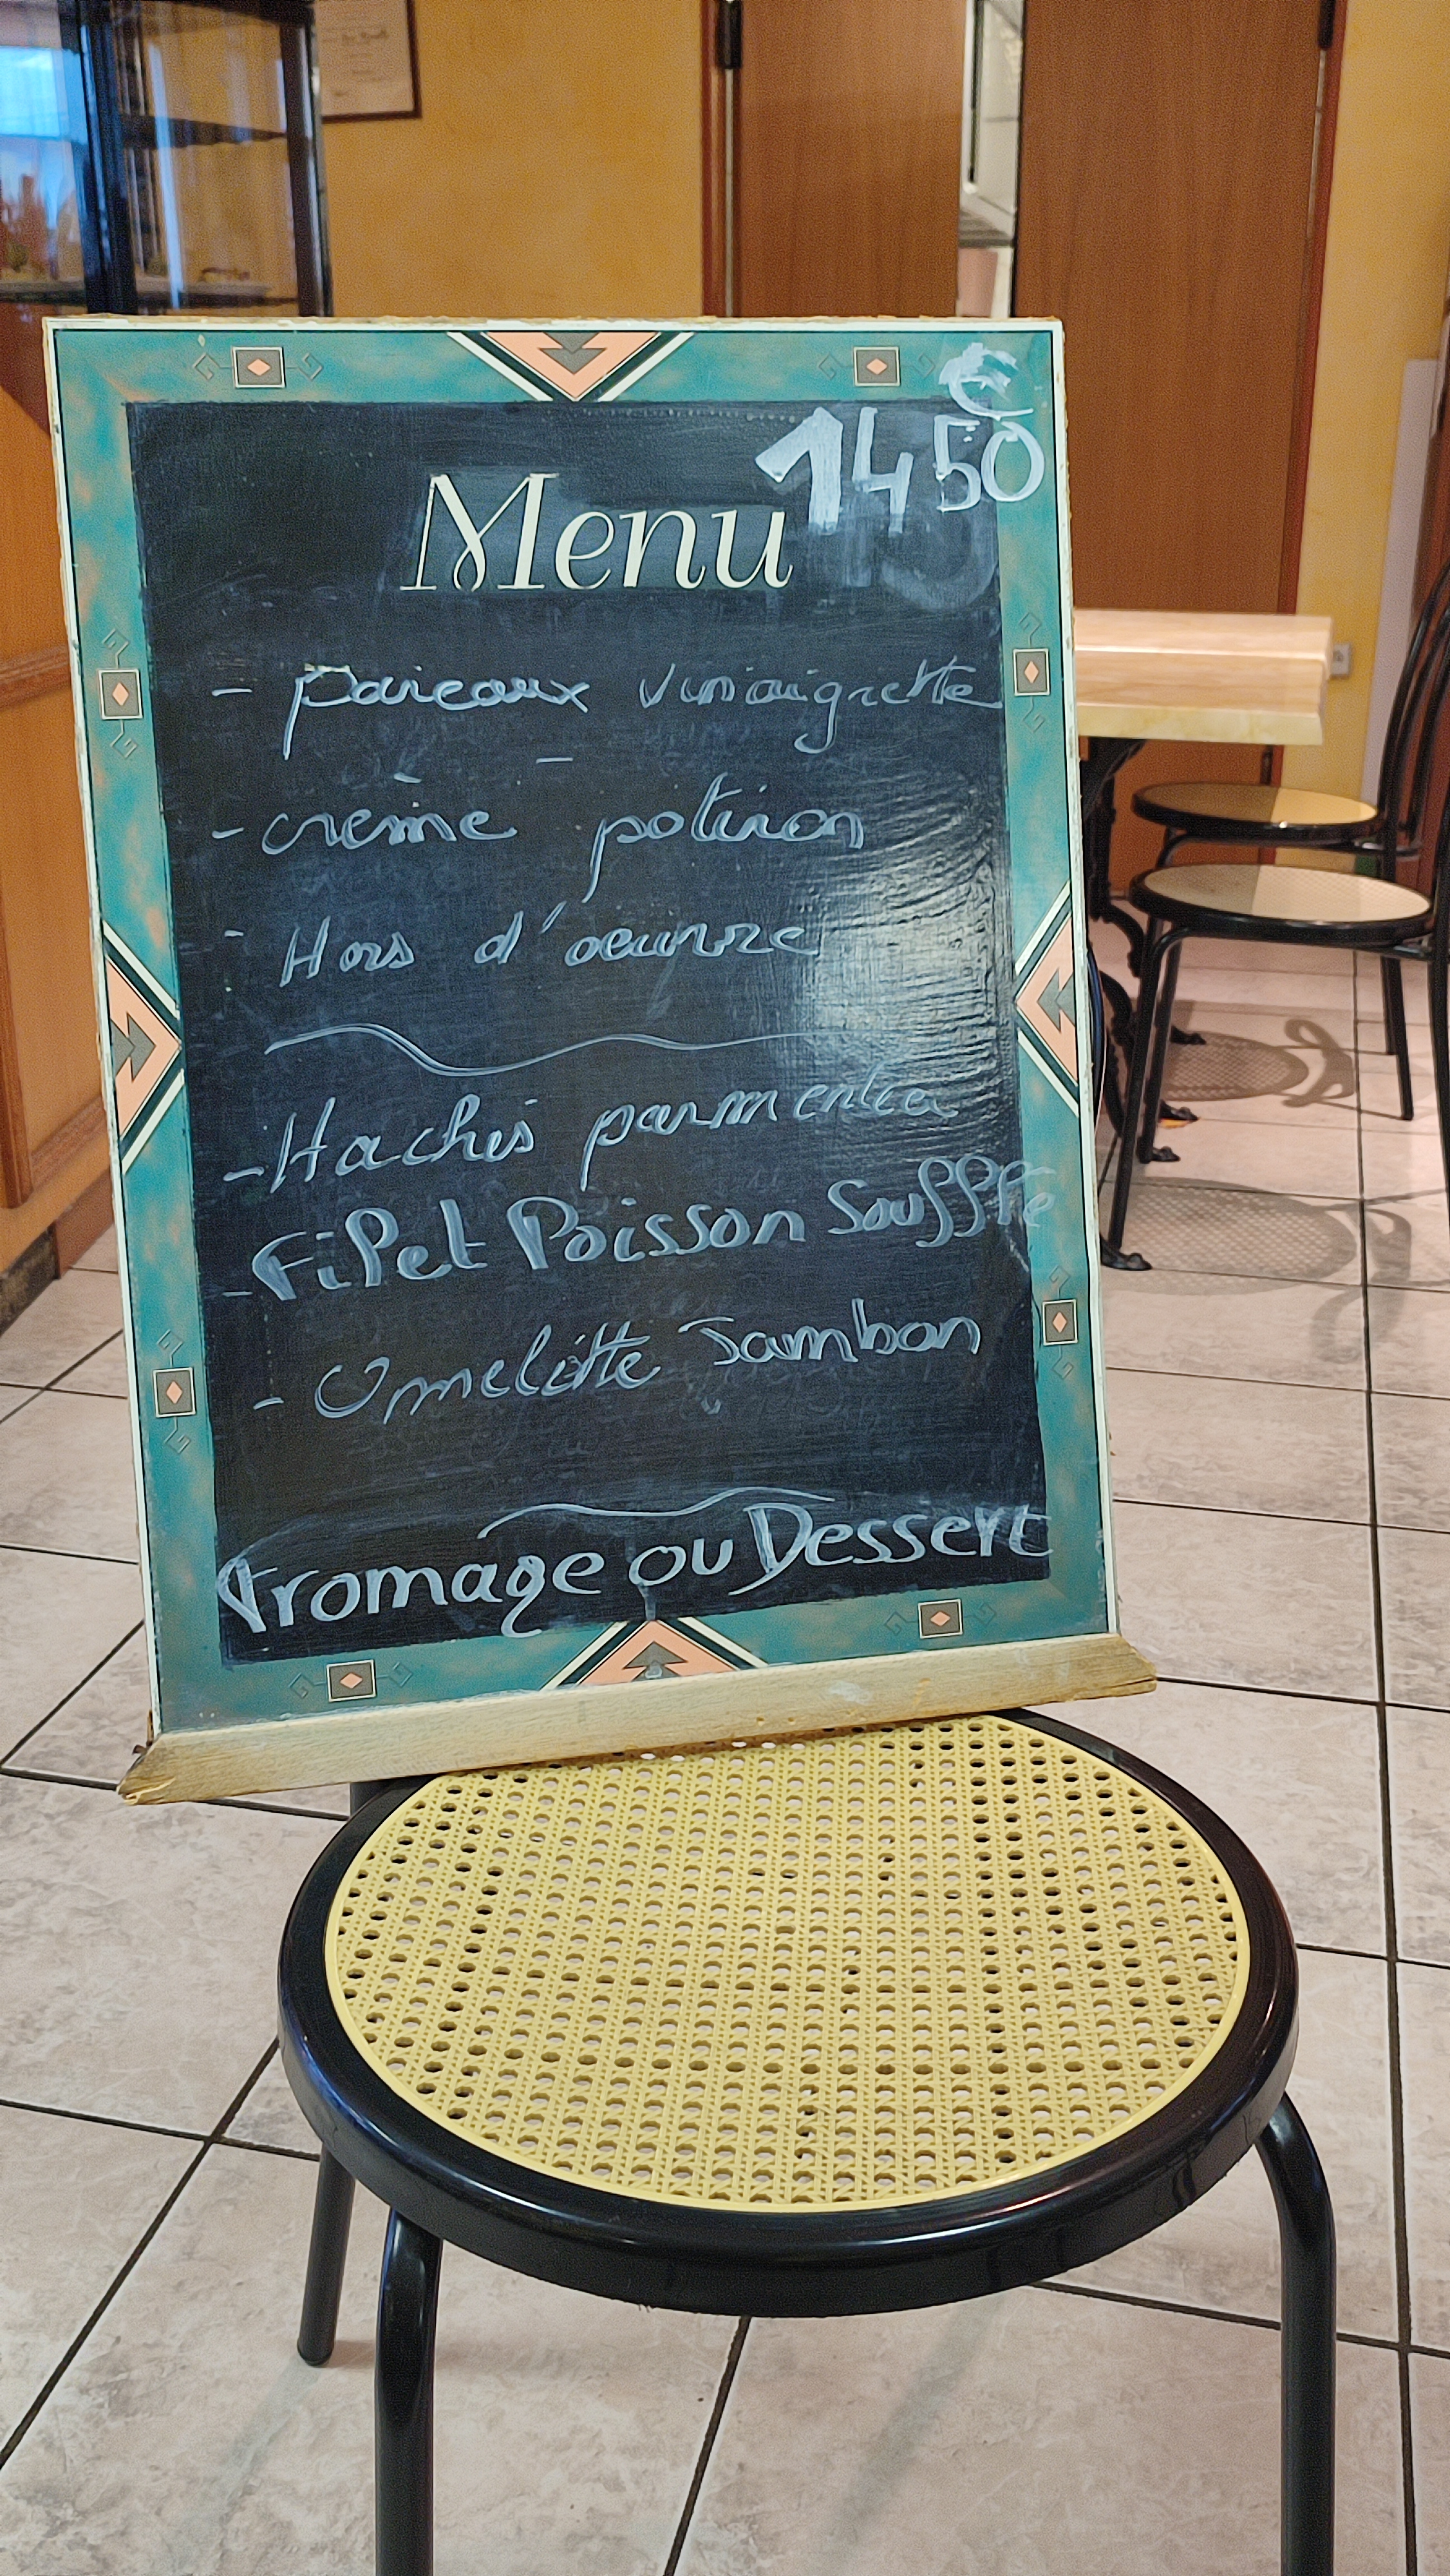 €
14 50
Menu
- poireaux vinaigrette
- crème potiron
- Hors d'oeuvre
- Hachis parmentier
- Filet Poisson Souffle
- Omelette Jambon
Fromage ou Dessert